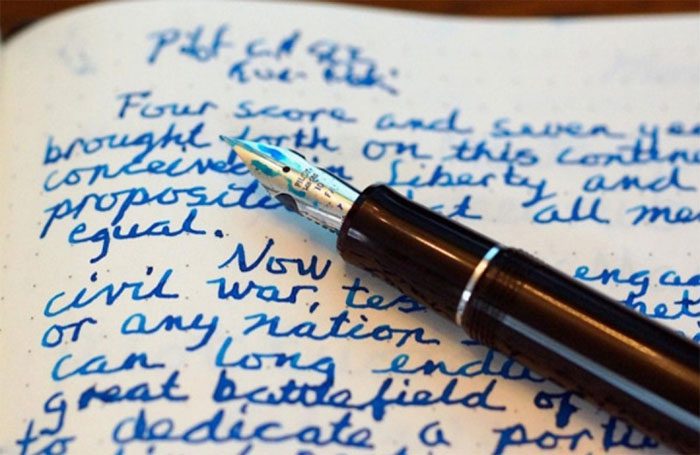 Four score and seven ye
brought forth on this contin
conceived in Liberty and
proposit that all me
equal.
Now engag
civil war, tes het
or any nation
can long endu
great battlefield of
to dedicate a porti